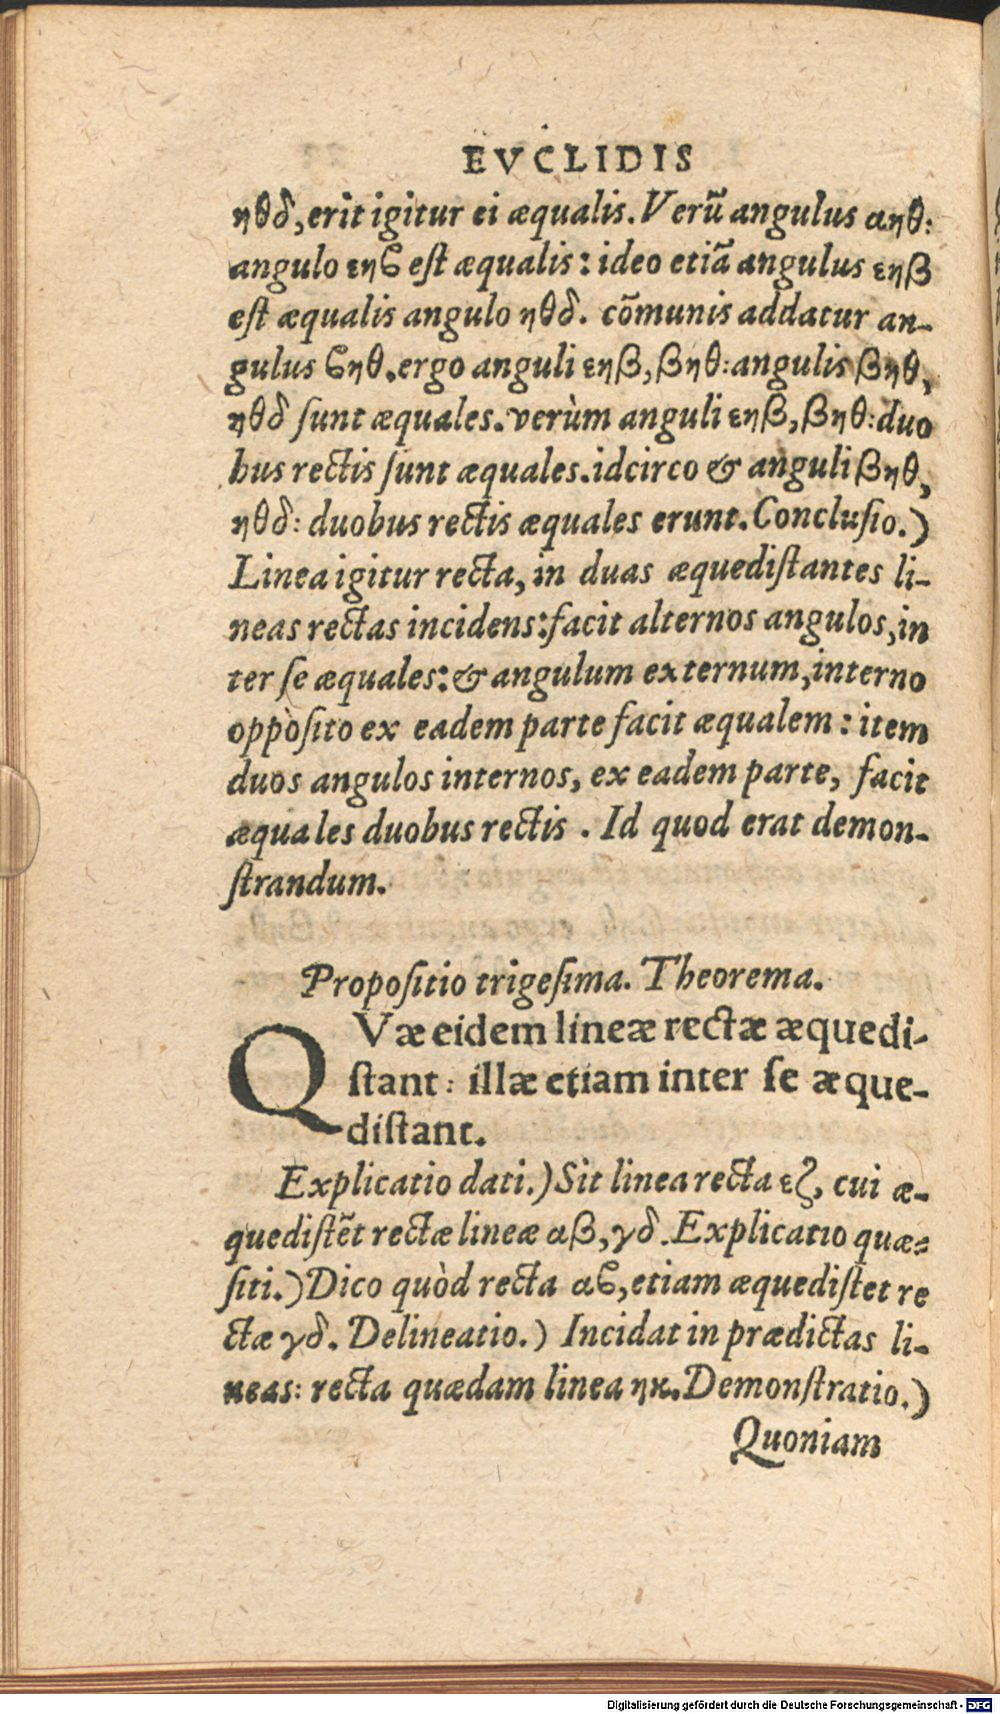 EVCLIDIS
ηθδ, erit igitur ei æqualis. Verũ angulus αηθ:
angulo εηϐ eſt æqualis: ideo etiã angulus εηβ
eſt æqualis angulo ηθδ. cõmunis addatur an-
gulus ϐηθ. ergo anguli εηβ, βηθ: angulis βηθ,
ηθδ ſunt æquales. verùm anguli εηβ, βηθ: duo
bus rectis ſunt æquales. idcirco & anguli βηθ,
ηθδ: duobus rectis æquales erunt. Concluſio.)
Linea igitur recta, in duas æquediſtantes li-
neas rectas incidens: facit alternos angulos, in
ter ſe æquales: & angulum externum, interno
oppòſito ex eadem parte facit æqualem: item
duos angulos internos, ex eadem parte, facit
æquales duobus rectis. Id quod erat demon-
ſtrandum.
Propoſitio trigeſima. Theorema.
QVæ eidem lineæ rectæ æquedi-
ſtant: illæ etiam inter ſe æque-
diſtant.
Explicatio dati.) Sit linea recta εζ, cui æ-
quediſtẽt rectæ lineæ αβ, γδ. Explicatio quæ-
ſiti.) Dico quòd recta αϐ, etiam æquediſtet re
ctæ γδ. Delineatio.) Incidat in prædictas li-
neas: recta quædam linea ηκ. Demonſtratio.)
Quoniam
Digitalisierung gefördert durch die Deutsche Forschungsgemeinschaft - DFG